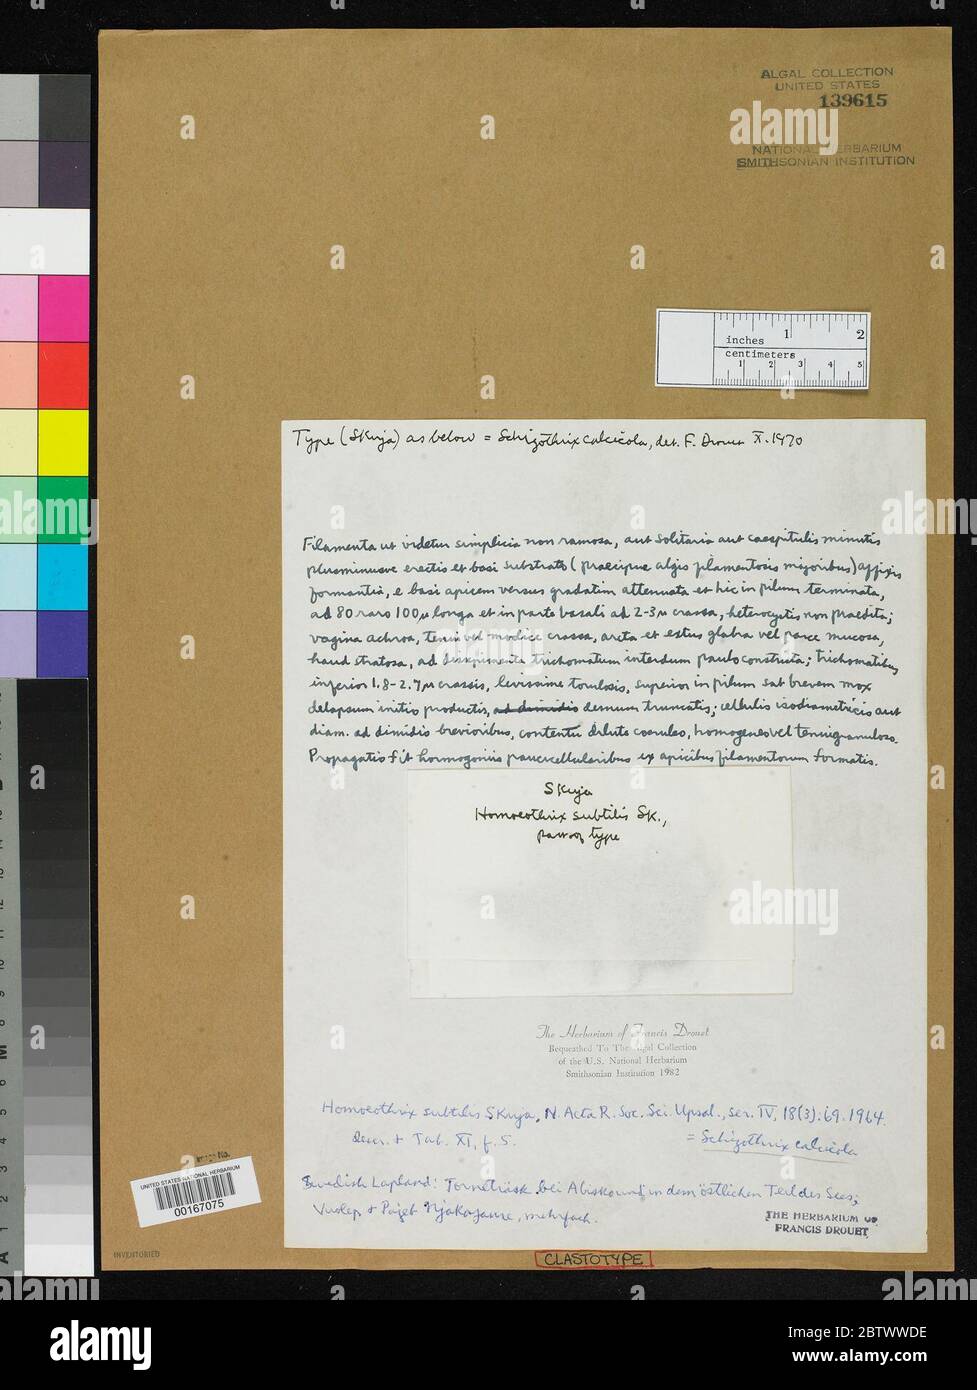 ALGAL COLLECTION
UNITED STATES
139615
NATIONAL HERBARIUM
SMITHSONIAN INSTITUTION
inches 1 2
centimeters
1 2 3 4 5
Type (Skuja) as below = Schizothrix calcicola, det. F. Drouet X.1970
Filamenta ut videtur simplicia non ramosa, aut solitaria aut caespitulis minutis
plusminusve erectis et basi substrato (praecipue algis filamentosis majoribus) affixis
formantia, e basi apicem versus gradatim attenuata et hic in pilum terminata,
ad 80 raro 100 µ longa et in parte basali ad 2-3 µ crassa, heterocystis non praedita;
vagina achroa, tenui vel modice crassa, arcta et extus glabra vel parce mucosa,
haud stratosa, ad dissepimenta trichomatum interdum paulo constricta; trichomatibus
inferior 1.8-2.7 µ crassis, levissime torulosis, superior in pilum sat brevem mox
delapsum initio productis, ad dimidio demum truncatis; cellulis isodiametricis aut
diam. ad dimidio brevioribus, contentu dilute coeruleo, homogeneo vel tenuigranuloso.
Propagatio fit hormogoniis paucicellularibus ex apicibus filamentorum formatis.
Skuja
Homoeothrix subtilis Sk.,
part of type
The Herbarium of Francis Drouet
Bequeathed To The Algal Collection
of the U.S. National Herbarium
Smithsonian Institution 1982
Homoeothrix subtilis Skuja, N. Acta R. Soc. Sci. Upsal., ser. IV, 18(3):69. 1964.
Descr. + Tab. XI, f. 5.
= Schizothrix calcicola
Swedish Lapland: Torneträsk bei Abisko und in dem östlichen Teil des Sees;
Vuolep + Pajep Njakajaure, mehrfach.
THE HERBARIUM OF
FRANCIS DROUET
Image No.
UNITED STATES NATIONAL HERBARIUM
00167075
INVENTORIED
CLASTOTYPE
alamy
alamy
Image ID: 2BTWWDE
www.alamy.com